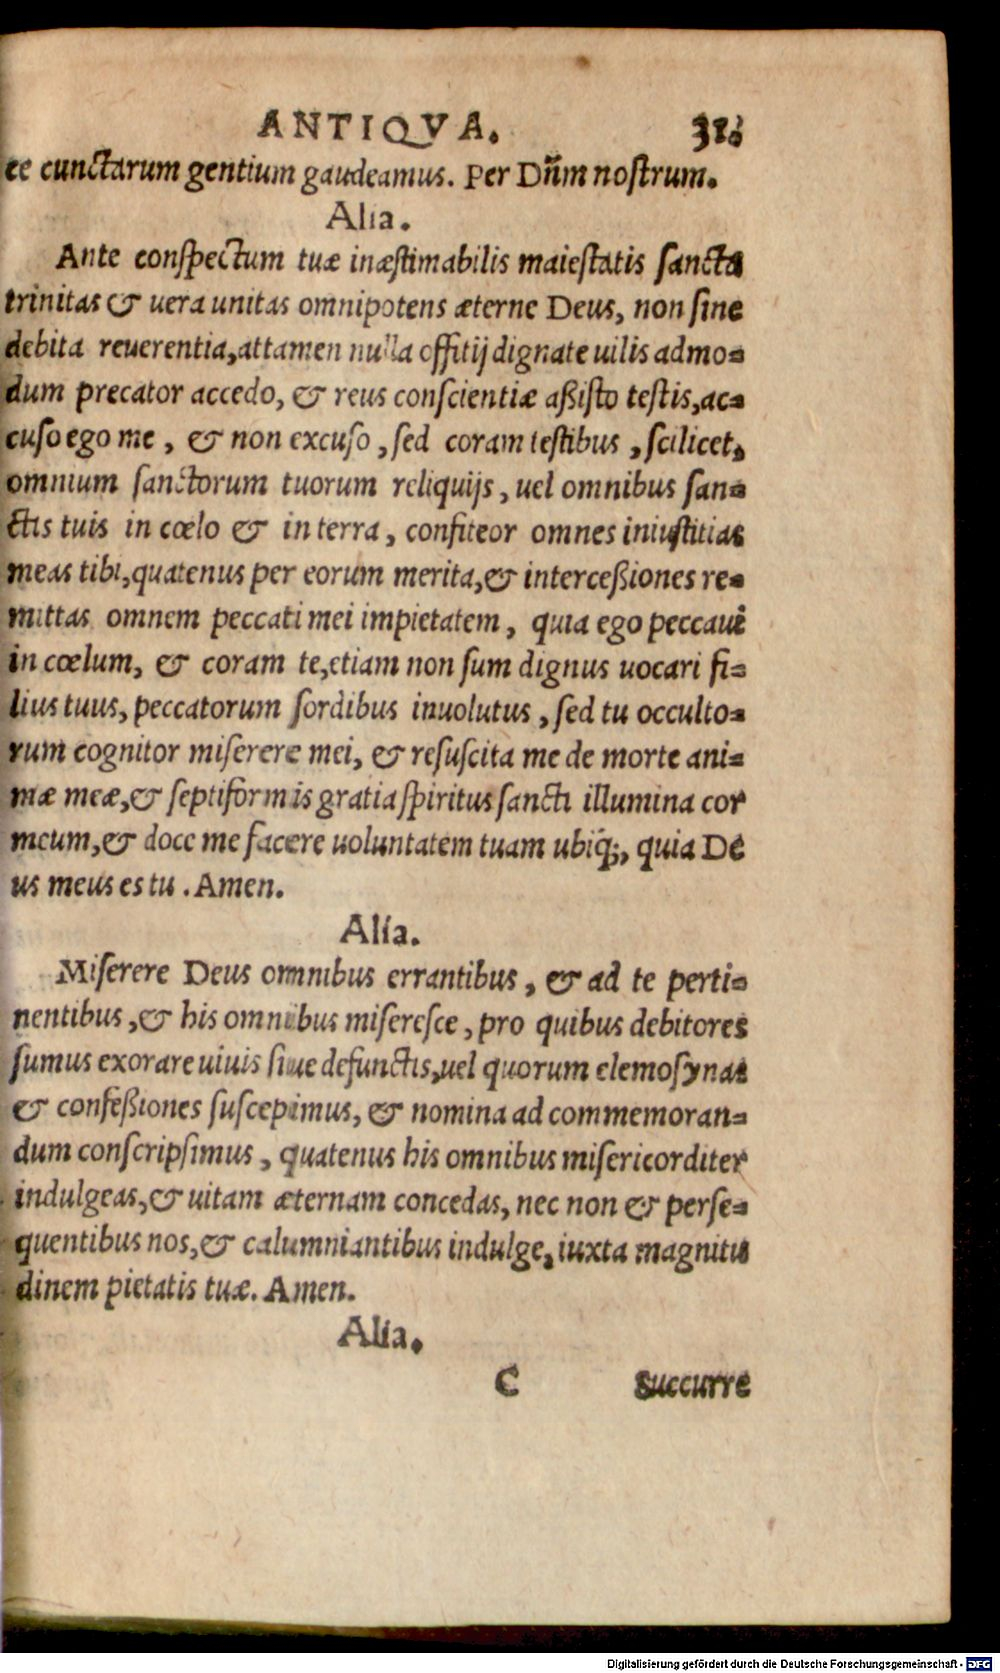 ANTIQVA.
ce cunctarum gentium gaudeamus. Per Dñm nostrum.
Alia.
Ante conspectum tuæ inæstimabilis maiestatis sancta
trinitas & vera unitas omnipotens æterne Deus, non sine
debita reuerentia, attamen nulla offitij dignate uilis admo-
dum precator accedo, & reus conscientiæ aßisto testis, ac-
cuso ego me, & non excuso, sed coram testibus, scilicet,
omnium sanctorum tuorum reliquijs, uel omnibus san-
ctis tuis in cœlo & in terra, confiteor omnes iniustitias
meas tibi, quatenus per eorum merita, & interceßiones re-
mittas omnem peccati mei impietatem, quia ego peccaui
in cœlum, & coram te, etiam non sum dignus uocari fi-
lius tuus, peccatorum sordibus inuolutus, sed tu occulto-
rum cognitor miserere mei, & resuscita me de morte ani-
mæ meæ, & septiformis gratia spiritus sancti illumina cor
meum, & doce me facere uoluntatem tuam ubiq;, quia De
us meus es tu. Amen.
Alia.
Miserere Deus omnibus errantibus, & ad te perti-
nentibus, & his omnibus miseresce, pro quibus debitores
sumus exorare uiuis siue defunctis, uel quorum elemosynas
& confeßiones suscepimus, & nomina ad commemoran-
dum conscripsimus, quatenus his omnibus misericorditer
indulgeas, & uitam æternam concedas, nec non & perse-
quentibus nos, & calumniantibus indulge, iuxta magnitu
dinem pietatis tuæ. Amen.
Alia.
C Succurre
Digitalisierung gefördert durch die Deutsche Forschungsgemeinschaft - DFG